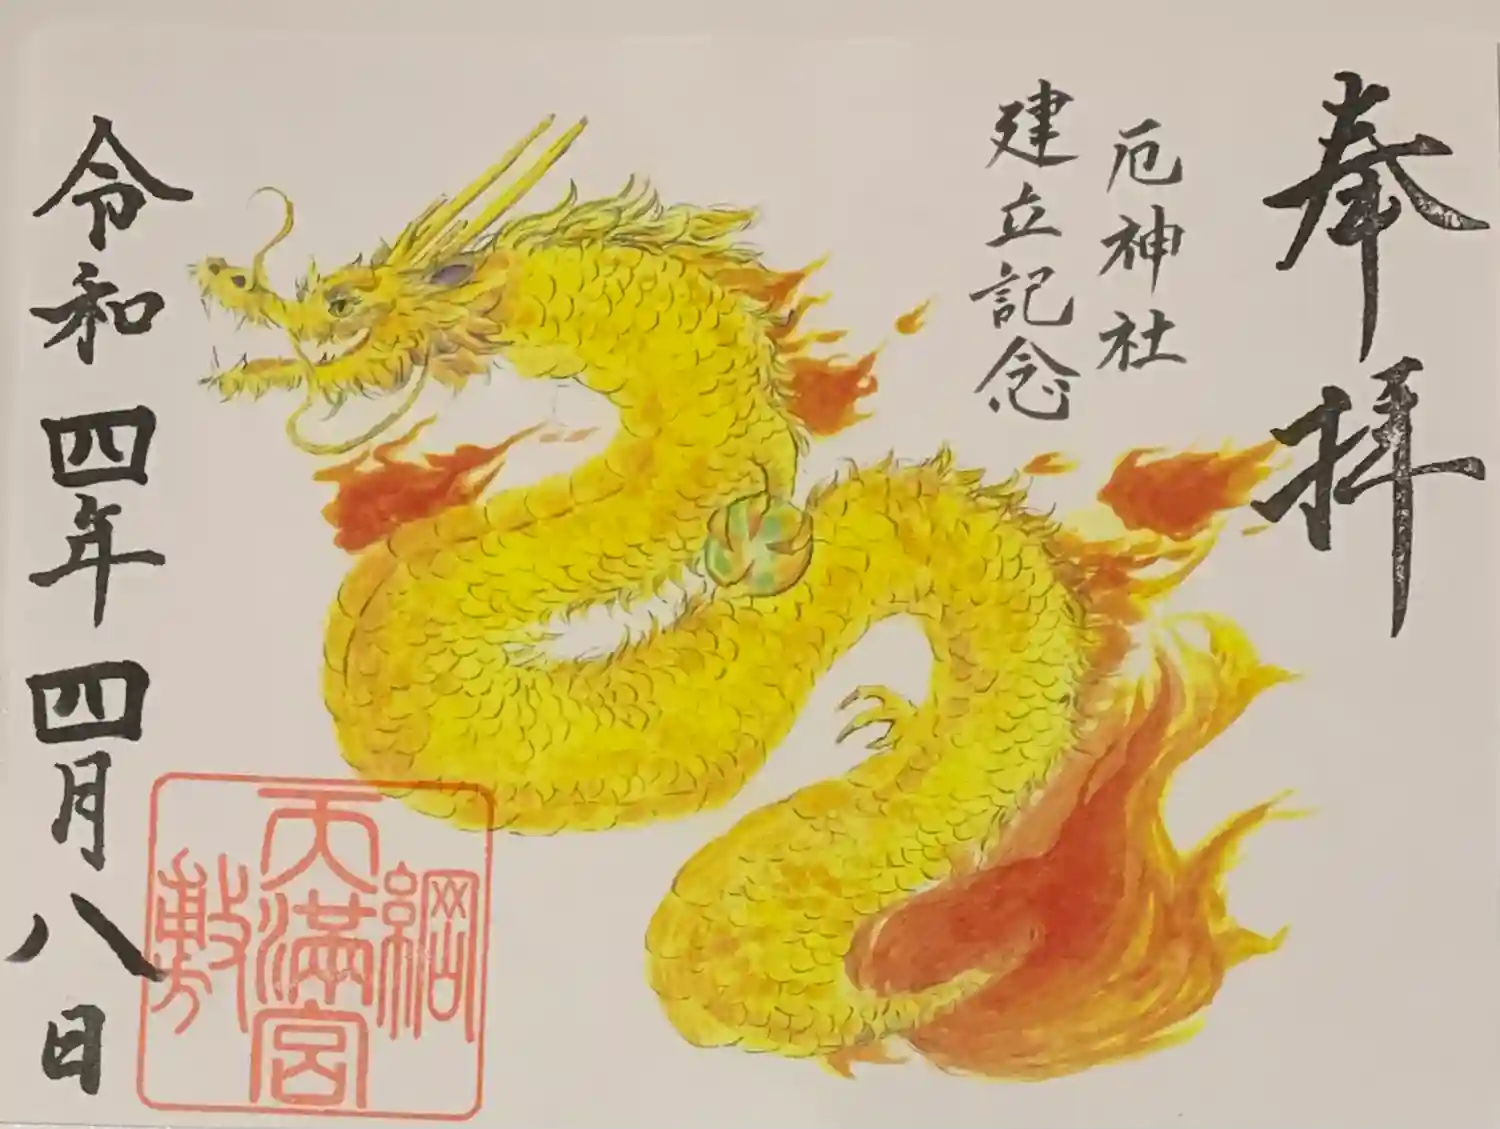 奉拝
厄神社
建立記念
令和四年四月八日
綱敷
天満宮